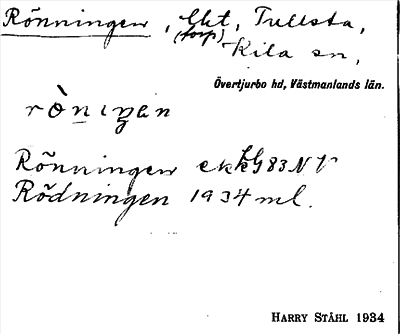 Rönningen, lht, Tullsta,
(torp) Kila sn,
Övertjurbo hd, Västmanlands län.
Rönningen ekbl G 83 NV
Rödningen 1934 ml.
HARRY STÅHL 1934